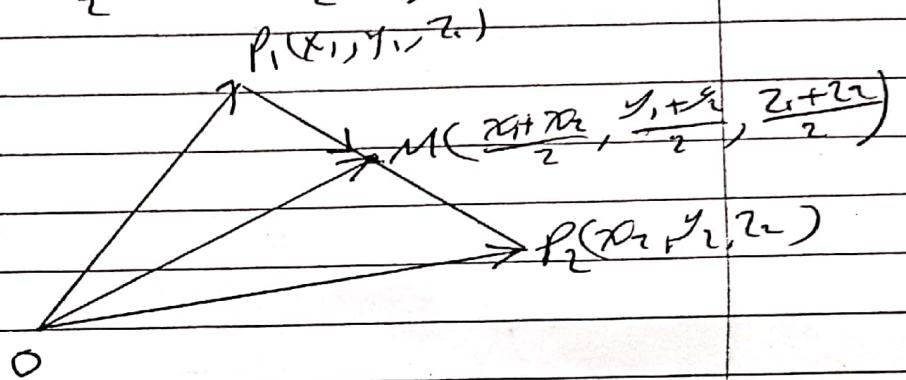 2 2
P₁(x₁, y₁, z₁)
M(x₁+x₂/2, y₁+y₂/2, z₁+z₂/2)
P₂(x₂, y₂, z₂)
O